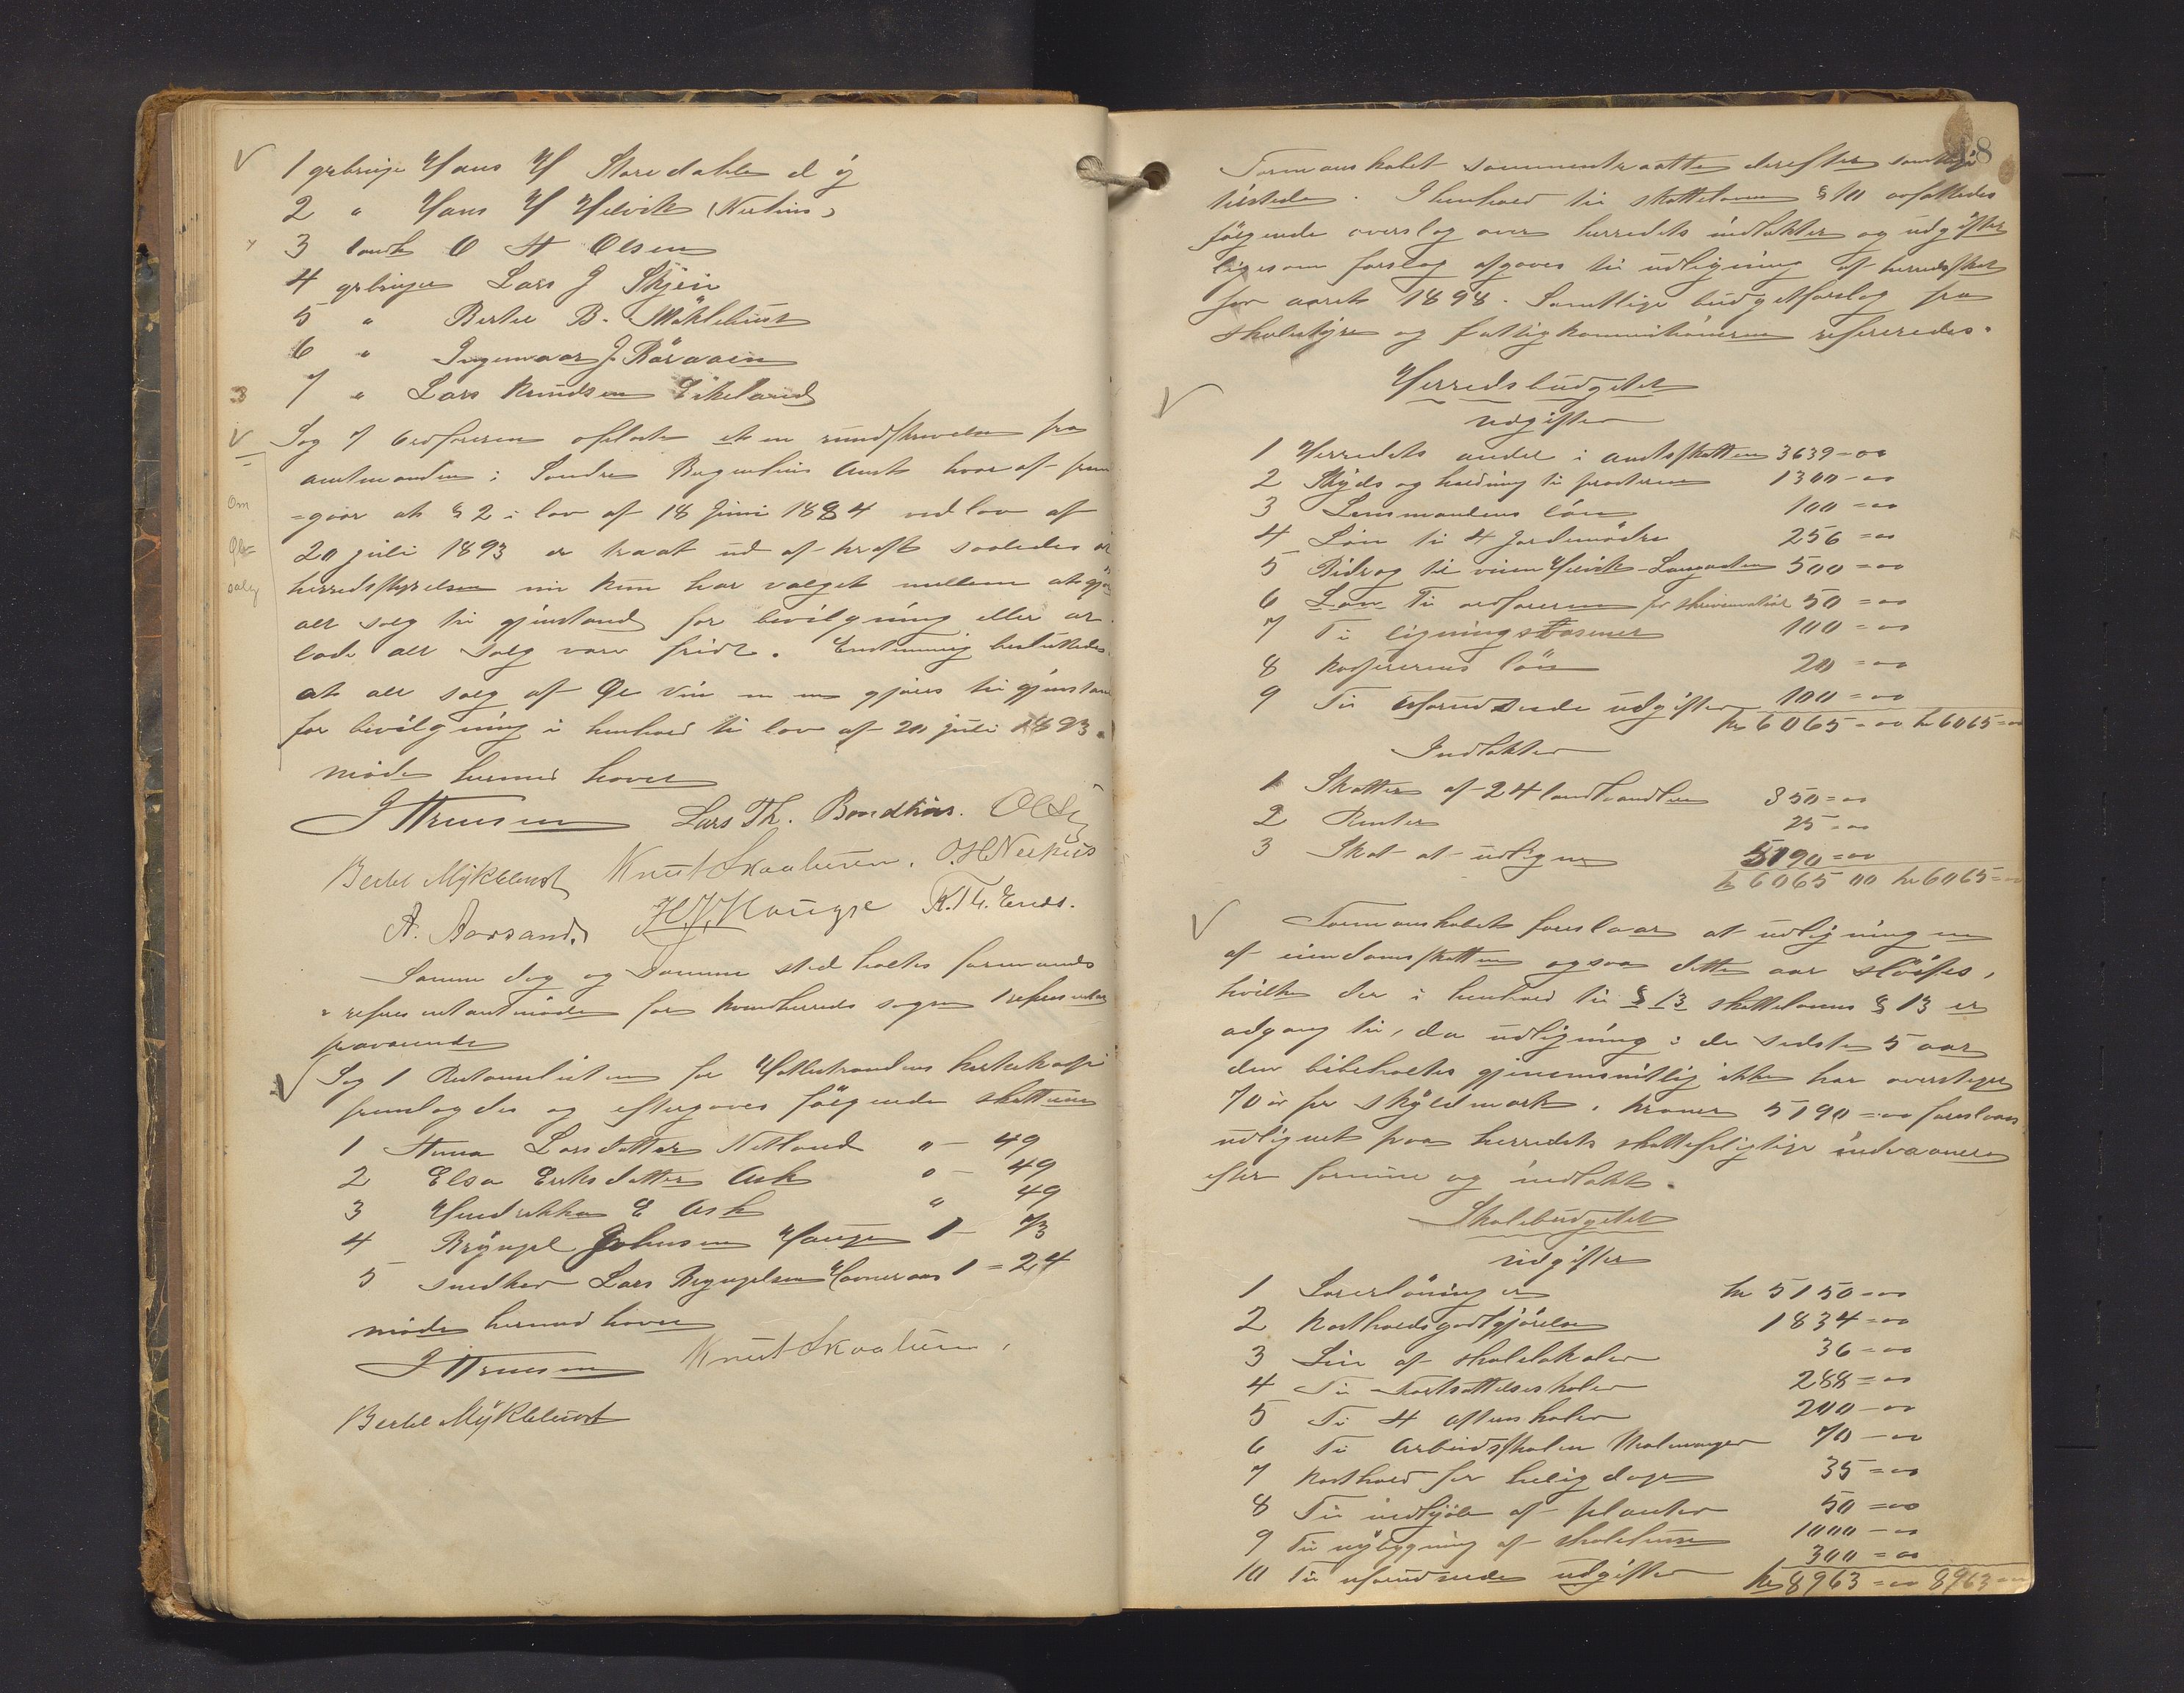 1 grbruger Hans H Storedahlen d y
2 " Hans H Helvik (Neethun)
3 landh O H Olsen
4 grbruger Lars J Skjein
5 " Bertel B. Mÿklebust
6 " Ingemoar J. Röraaen
3 7 " Lars Knudsen Eikeland
Sag 7 Ordføreren oplæste et en rundskrivelse fra
amtmanden i Søndre Bergenhus Amt hvor af frem
Om =gaar at § 2 i lov af 18 Juni 1884 ved lov af
Øl= 20 juli 1893 er traat ud af kraft saaledes at
salg herredsstyrelsen nu kun har valget mellem at gjøre
alt salg til gjenstand for bevilgning eller at
lade alt salg være fridt. Enstemmig besluttedes
at alt salg af Øl Vin m m gjøres til gjenstand
for bevilgning i henhold til lov af 20 juli 1893.
møde hermed hævet
J Hruesen Lars Th. Bondhus.
Bertel Mÿklebust Knut Skaaluren. O. H. Neehus
A. Aarsand. H. J. Hauge K. Th. Enes.
Samme dag og samme sted holtes formands
& representantmøde for Kvindherreds sogn 1 representant
fraværende
Sag 1 Restanselisten for Hattestrandens kirkekasse
fremlagdes og eftergaves følgende skatteire
1 Anna Larsdatter Netland " - 49
2 Elsa Eriksdatter Ask " - 49
3 Hendrikka E Ask " 49
4 Brÿngel Johnsen Hauge 1 - 73
5 snedker Lars Bryngelsen Hovneraas 1 = 24
møde hermed hævet
J Hruesen Knut Skaaluren,
Bertel Mÿklebust
18
Formanskabet sammentraatte derefter samtlige
tilstede. I henhold til skatteloven § 10 avfattedes
følgende overslag over herredets indtækter og udgifter
ligesom forslag afgaves til udligning af herredsskat
for aaret 1898. Samtlige budgetforslag fra
skolestyre og fattigkommisionerne refereredes.
Herredsbudgetet
udgifter
1 Herredets andel i amtsskatten 3639 - 00
2 Skyds og holdning til prosteren 1300 - 00
3 Lensmandens løn 100 = 00
4 Løn til 4 Jordemødre 256 = 00
5 Bidrag til veien Helvik - Langgaaten 500 = 00
6 Løn Til ordføreren for skrivematriale 50 = 00
7 Til ligningsvæsenet 100 = 00
8 kassererens løn 20 = 00
9 Til uforudseede udgifter 100 = 00
kr 6065 = 00 kr 6065 = 00
Indtækter
1 Skatter af 24 landhandlere 350 = 00
2 Renter 25 = 00
3 Skat at udligne 5190 = 00
kr 6065 00 kr 6065 = 00
Formanskabet foreslaar at udligningen
af eiendomsskatten ogsaa dette aar sløifes,
hvilke der i henhold til § 13 skattelovens § 13 er
adgang til, da udligning i de sidste 5 aar
den bibeholtes gjenemsnitlig ikke har oversteget
70 ør per skyldmark. kroner 5190 = 00 foreslaaes
udlignet paa herredets skattepligtige indvaanere
efter formue og indtækt.
Skolebudgetet
udgifter
1 Lærerlønninger kr 5150 = 00
2 Kostholdsgodtgjørelse 1834 = 00
3 Leie af skolelokaler 36 = 00
4 Til Fortsættelsesskoler 288 = 00
5 Til 4 aftenskoler 200 - 00
6 Til arbeidsskolen Malmanger 70 - 00
7 Kosthold for hellig dage 35 = 00
8 Til indkjøb af planter 50 = 00
9 Til nybygning af skolehuse 1000 - 00
10 Til uforudseede udgifter 300 = 00
kr 8963 = 00 8963 = 00